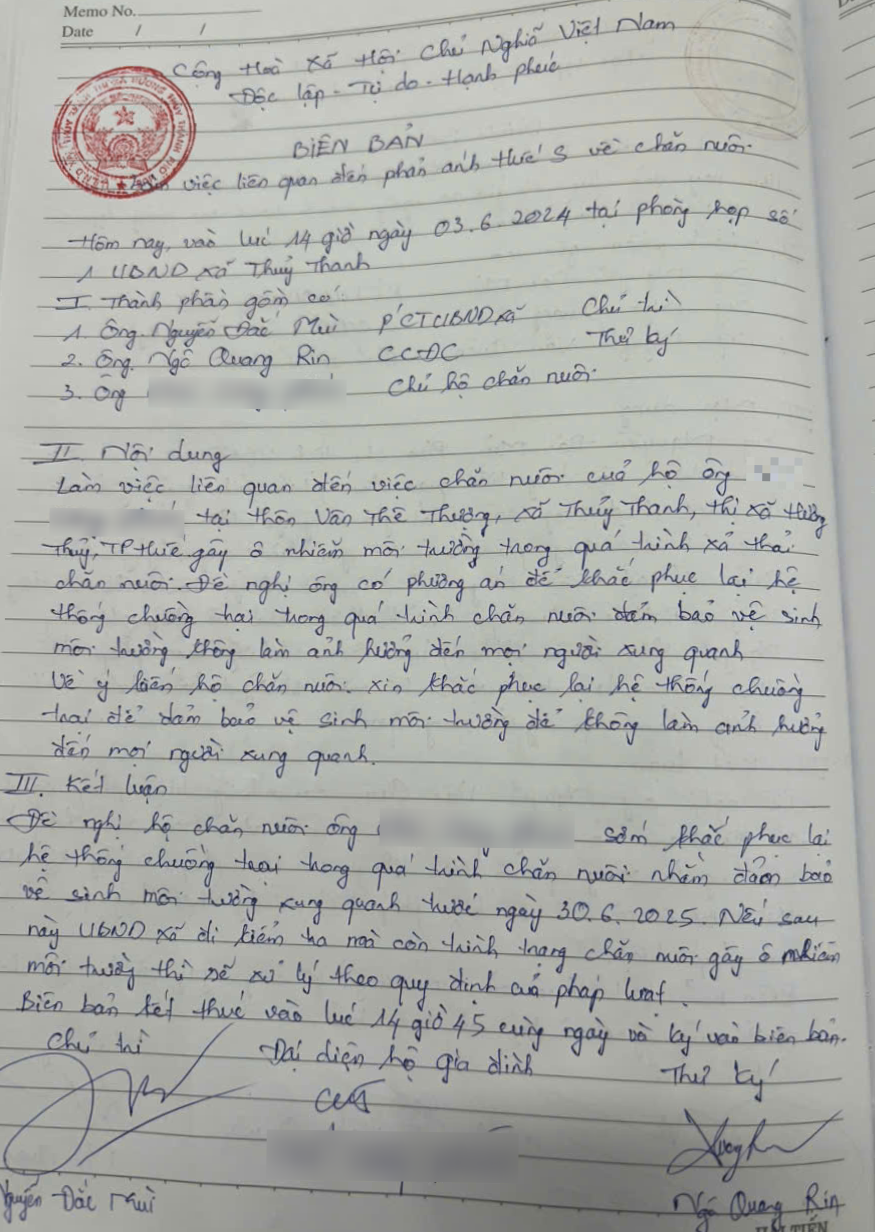 Memo No.
Date / /
Cộng Hoà Xã Hội Chủ Nghĩa Việt Nam
Độc lập - Tự do - Hạnh phúc
BIÊN BẢN
việc liên quan đến phản ánh Huế S về chăn nuôi
Hôm nay, vào lúc 14 giờ ngày 03.6.2024 tại phòng họp số
1 UBND xã Thuỷ Thanh
I. Thành phần gồm có:
1. Ông. Nguyễn Đắc Mùi PCTUBND xã Chủ trì
2. Ông. Ngô Quang Rin CCĐC Thư ký
3. Ông Chủ hộ chăn nuôi
II. Nội dung
Làm việc liên quan đến việc chăn nuôi của hộ ông
tại thôn Vân Thê Thượng, xã Thuỷ Thanh, thị xã Hương
Thuỷ, TP Huế gây ô nhiễm môi trường trong quá trình xả thải
chăn nuôi. Đề nghị ông có phương án để khắc phục lại hệ
thống chuồng trại trong quá trình chăn nuôi đảm bảo vệ sinh
môi trường không làm ảnh hưởng đến mọi người xung quanh
Về ý kiến hộ chăn nuôi. xin khắc phục lại hệ thống chuồng
trại để đảm bảo vệ sinh môi trường để không làm ảnh hưởng
đến mọi người xung quanh.
III. Kết luận
Đề nghị hộ chăn nuôi ông sớm khắc phục lại
hệ thống chuồng trại trong quá trình chăn nuôi nhằm đảm bảo
vệ sinh môi trường xung quanh trước ngày 30.6.2025. Nếu sau
này UBND xã đi kiểm tra mà còn trình trạng chăn nuôi gây ô nhiễm
môi trường thì sẽ xử lý theo quy định của pháp luật.
Biên bản kết thúc vào lúc 14 giờ 45 cùng ngày và ký vào biên bản.
Chủ trì Đại diện hộ gia đình Thư ký
Nguyễn Đắc Mùi Ngô Quang Rin